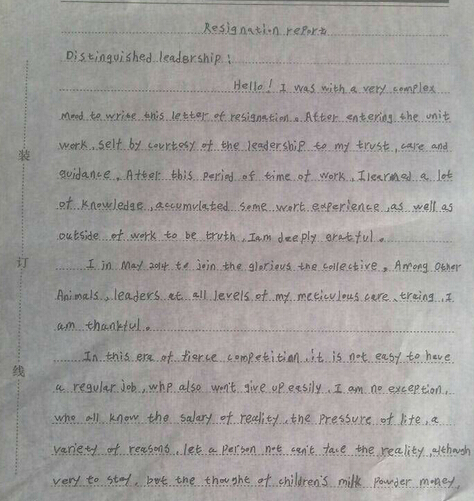 Resignation report
Distinguished leadership!
Hello! I was with a very complex
mood to write this letter of resignation. After entering the unit
work, self by courtosy of the leadership to my trust, care and
guidance. After this period of time of work, I learned a lot
of knowledge, accumulated some wort experience, as well as
outside of work to be truth, Iam deeply grateful.
I in May 2014 to join the glorious the collective. Among Other
Animals, leaders at all levels of my meticulous care, traing, I
am thankful.
In this era of fierce competition, it is not easy to have
a regular job, who also won't give up easily. I am no exception,
who all know the salary of reality, the pressure of life, a
variety of reasons, let a person not can't take the reality, although
very to stay, but the thought of children's milk Powder money,
装
订
线